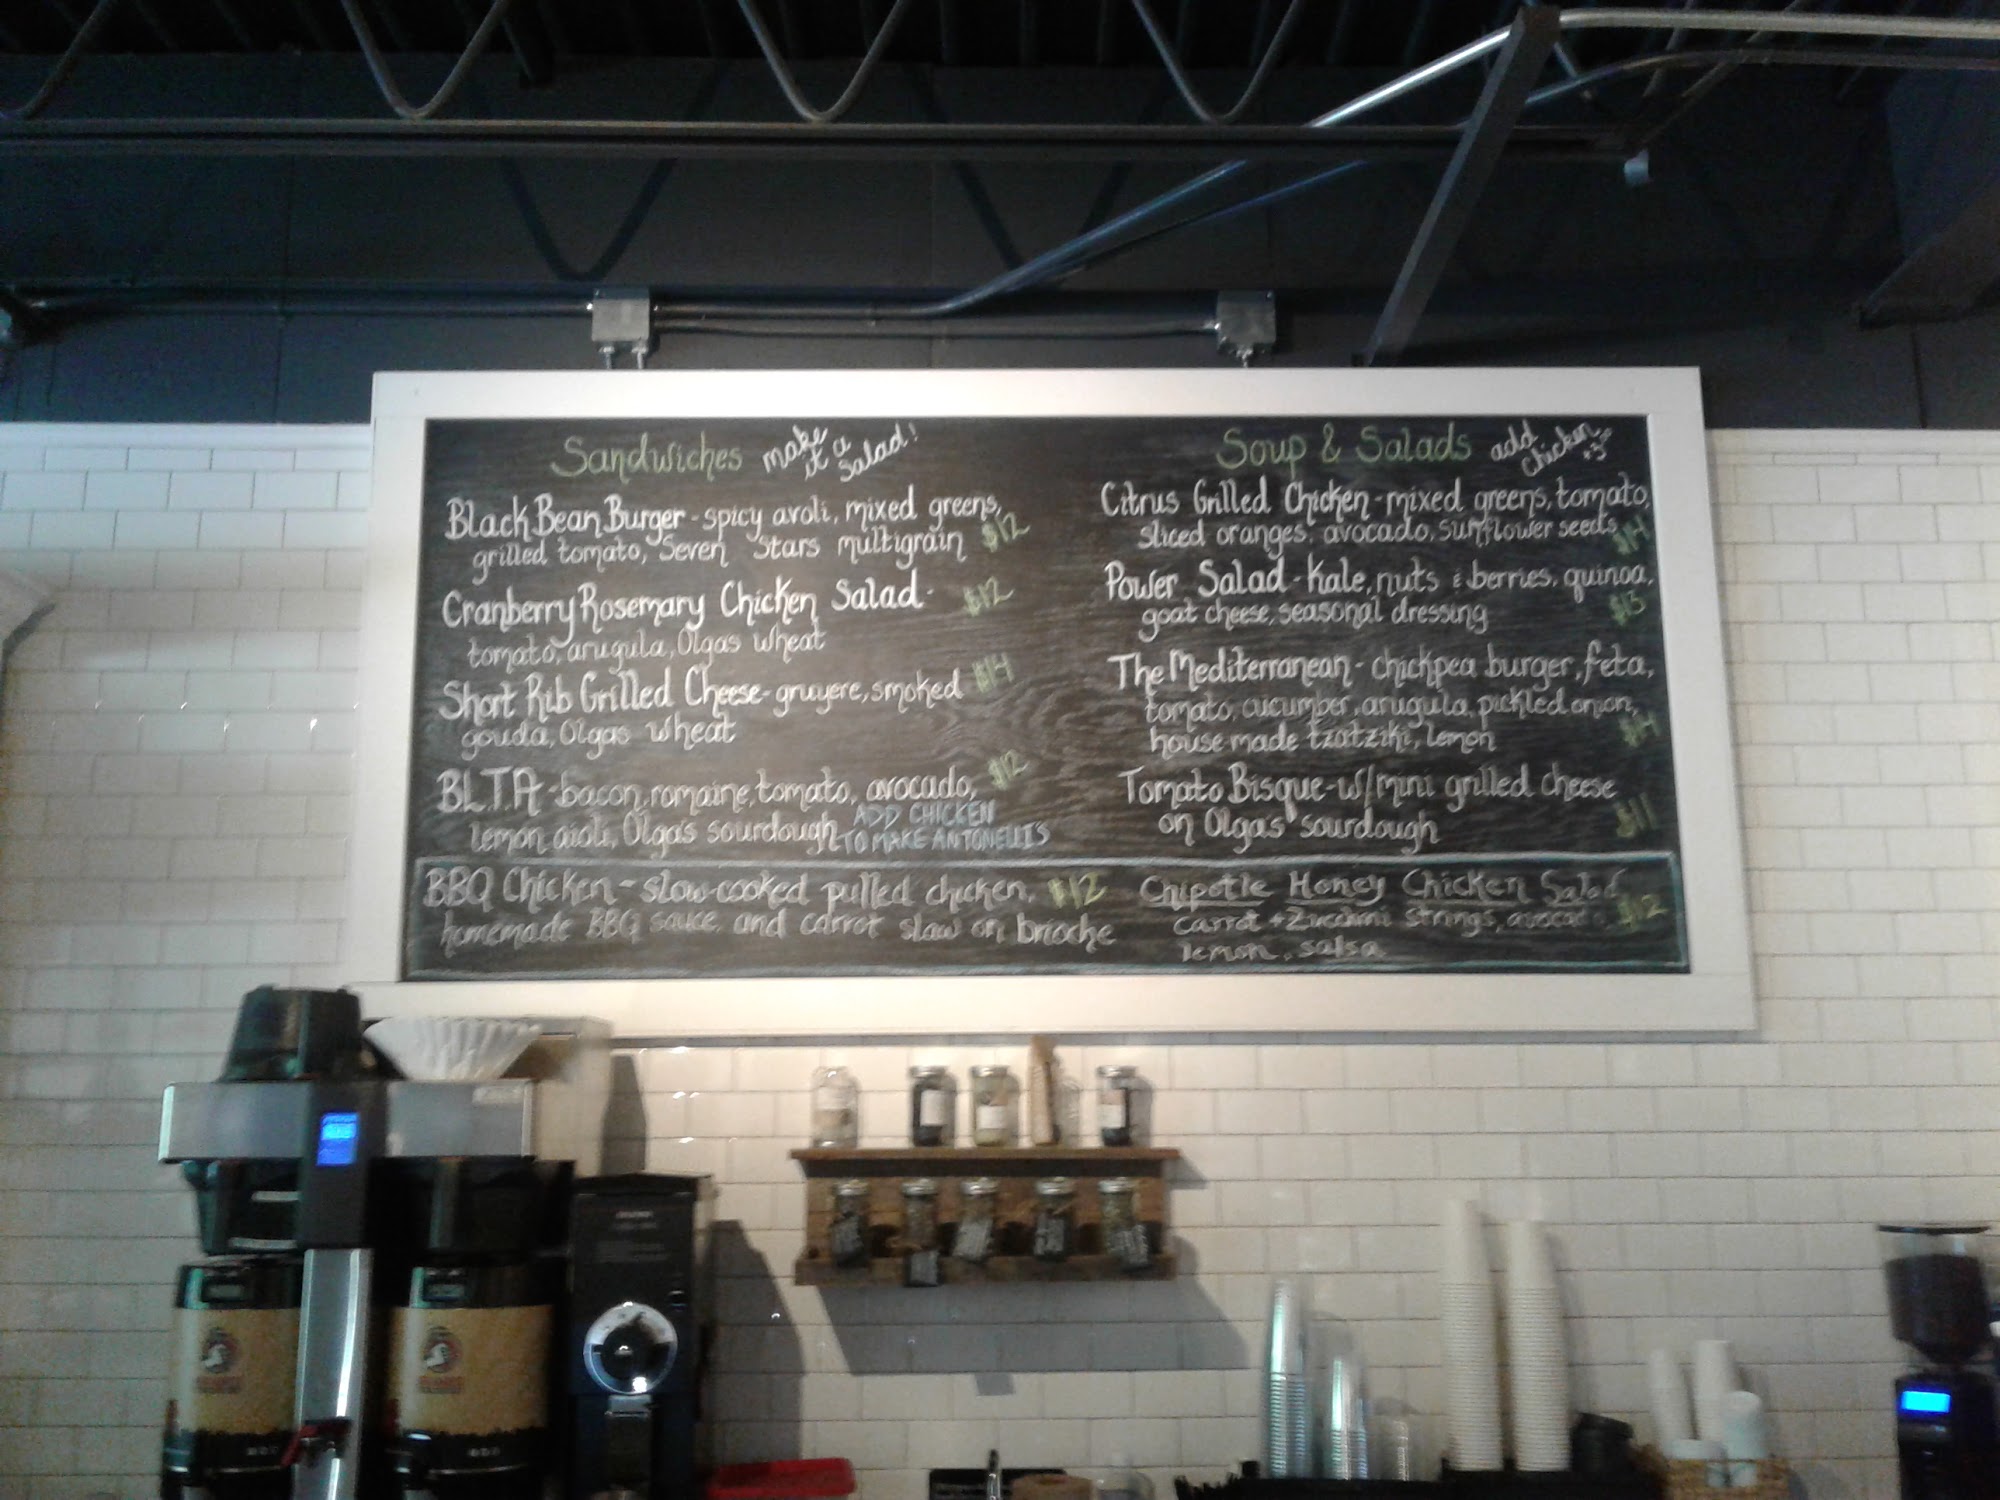 Sandwiches make it a salad!
Black Bean Burger - spicy avoli, mixed greens,
grilled tomato, Seven Stars multigrain $12
Cranberry Rosemary Chicken Salad - $12
tomato, arugula, Olgas wheat
Short Rib Grilled Cheese - gruyere, smoked $14
gouda, Olgas wheat
B.L.T.A - bacon, romaine, tomato, avocado, $12
lemon aioli, Olga's sourdough ADD CHICKEN
TO MAKE ANTONELLI'S
BBQ Chicken - slow-cooked pulled chicken, $12
homemade BBQ sauce, and carrot slaw on brioche
Soup & Salads add chicken
Citrus Grilled Chicken - mixed greens, tomato,
sliced oranges, avocado, sunflower seeds $14
Power Salad - kale, nuts & berries, quinoa,
goat cheese, seasonal dressing $13
The Mediterranean - chickpea burger, feta,
tomato, cucumber, arugula, pickled onion,
house made tzatziki, lemon $14
Tomato Bisque - w/mini grilled cheese
on Olga's sourdough $11
Chipotle Honey Chicken Salad
carrot + Zucchini strings, avocado, $12
lemon, salsa